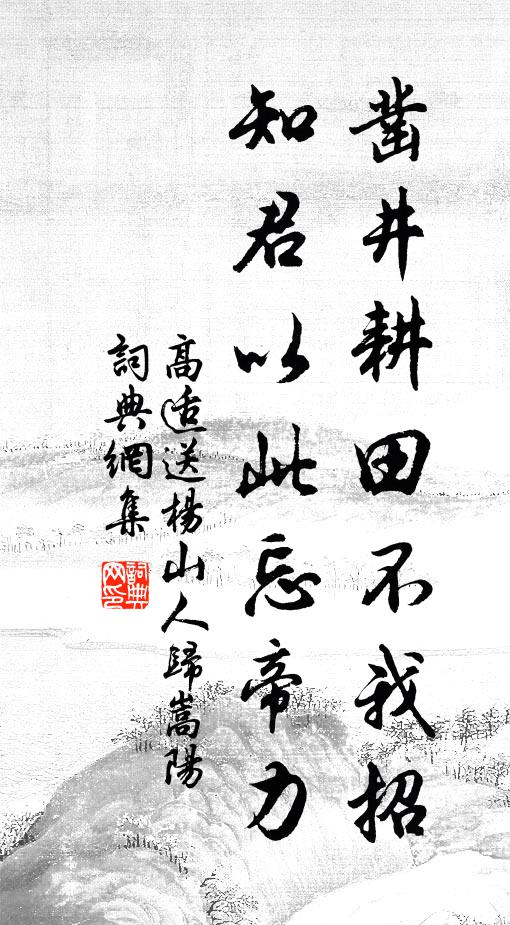 鑿井耕田不我招
知君以此忘帝力
高适送楊山人歸嵩陽
詞典網集
詞典网印